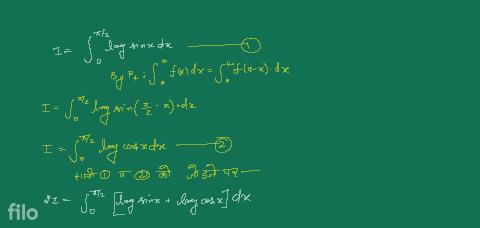 I = ∫₀^{π/2} log sinx dx ——— ①
By P₄ : ∫₀^a f(x) dx = ∫₀^a f(a-x) · dx
I = ∫₀^{π/2} log sin(π/2 - x) · dx
I = ∫₀^{π/2} log cosx dx ——— ②
समी ① व ② को जोडने पर —
2I = ∫₀^{π/2} [log sinx + log cosx] dx
filo